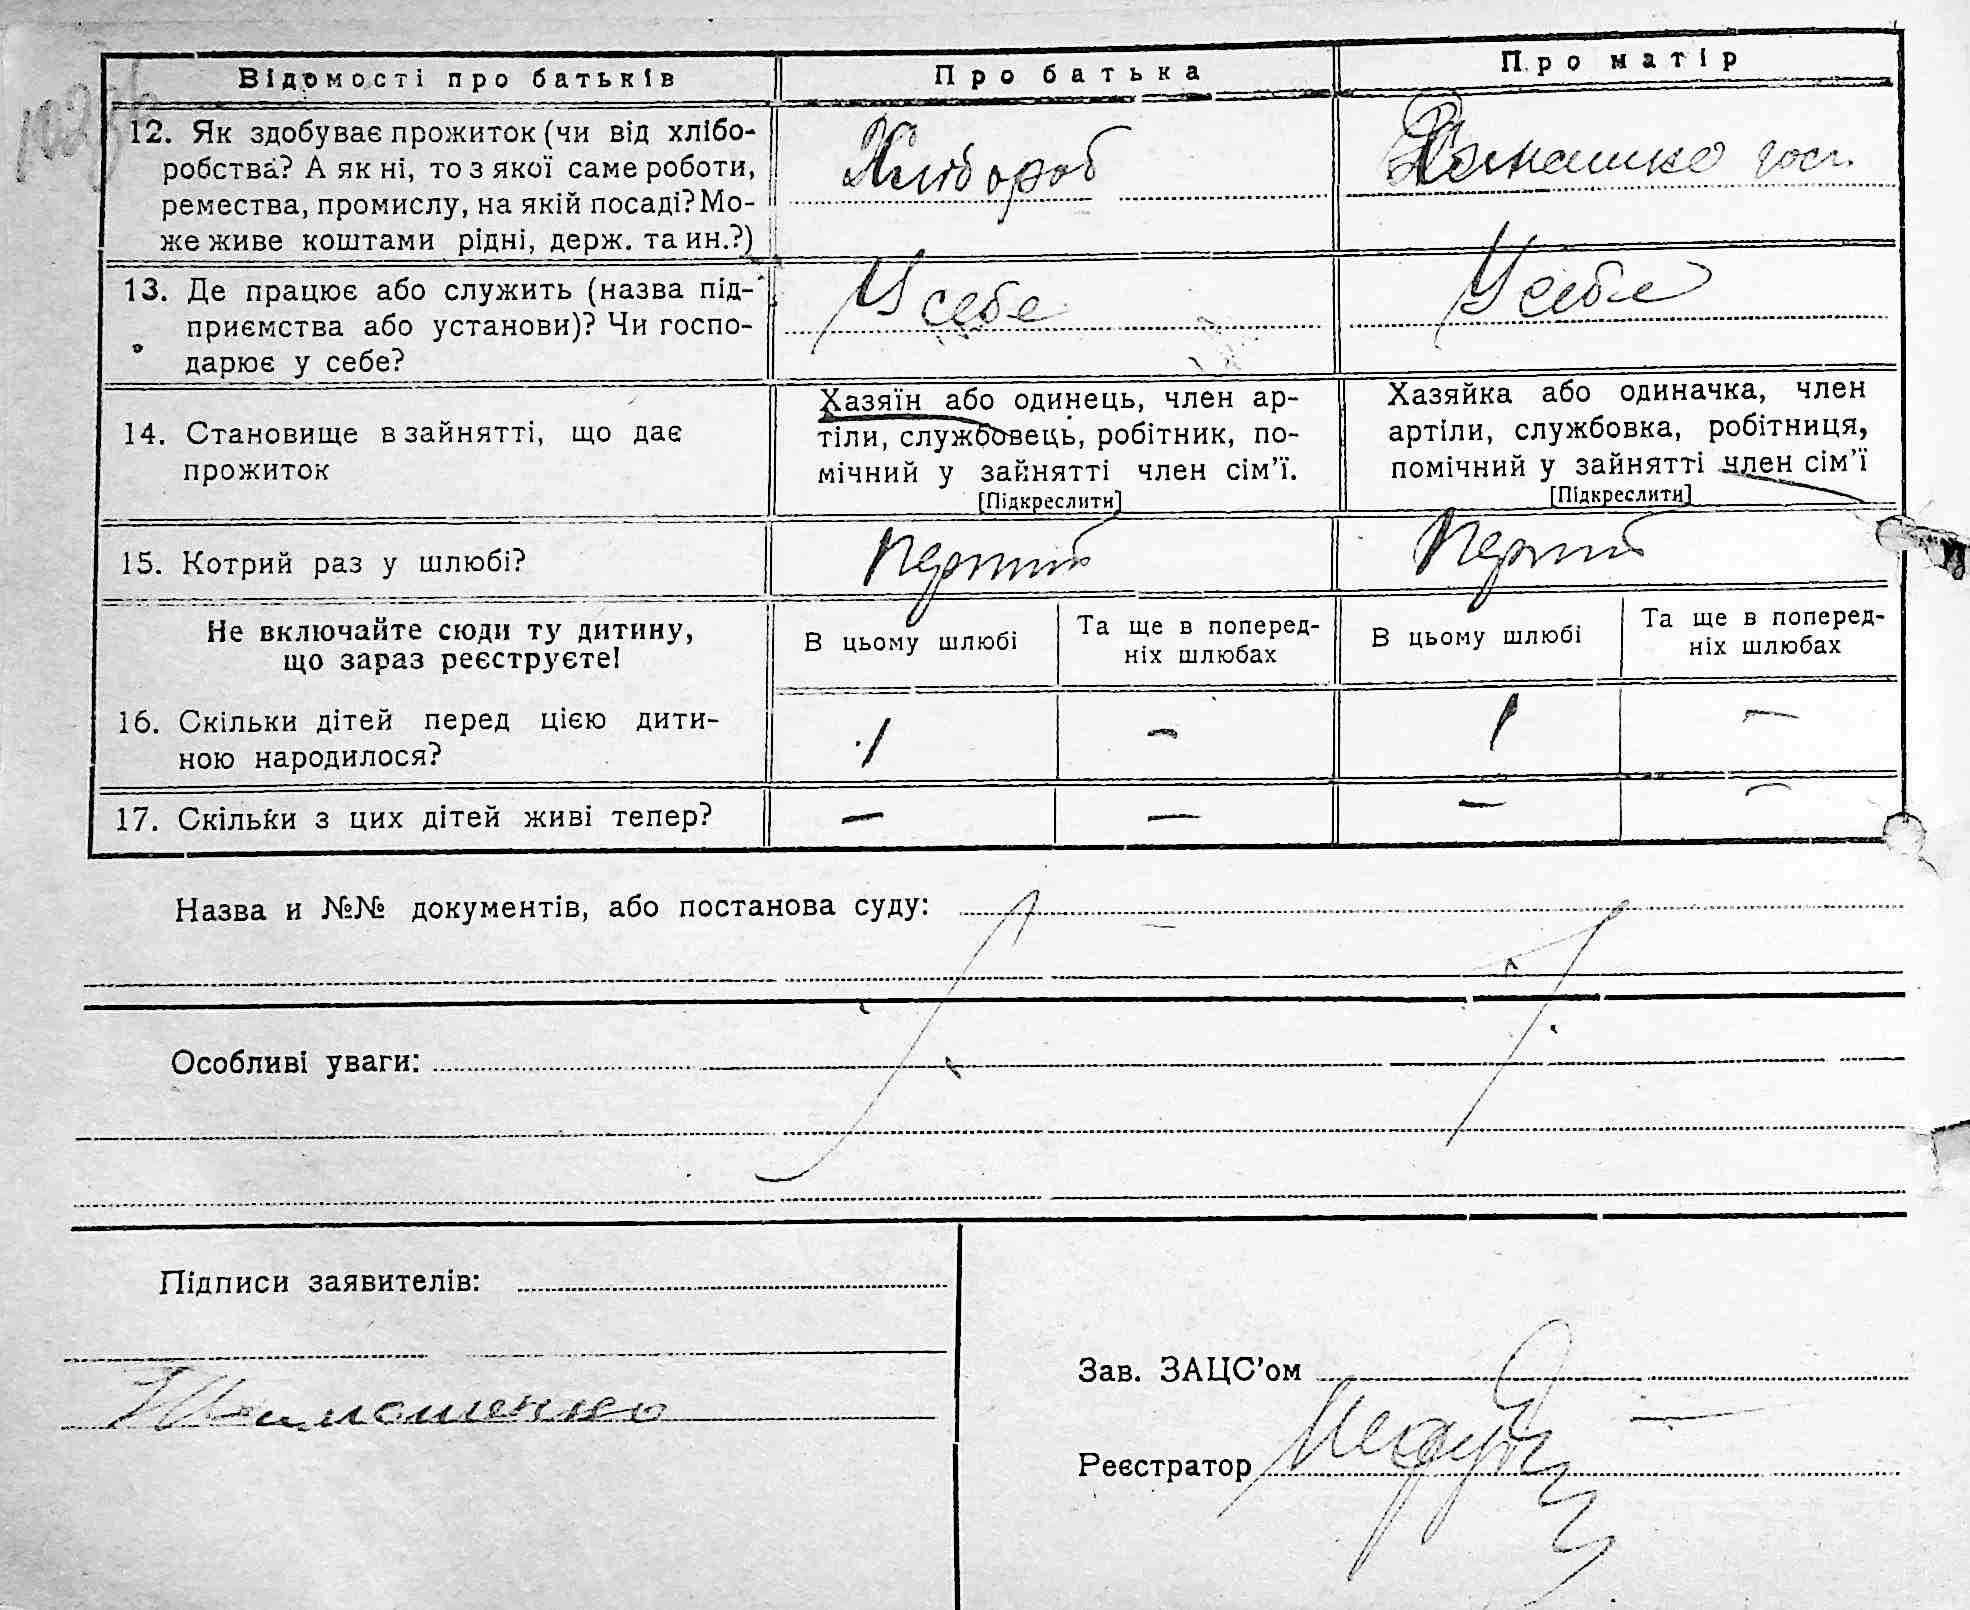 Відомості про батьків
Про батька
Про матір
12. Як здобуває прожиток (чи від хлібо-
робства? А як ні, то з якої саме роботи,
ремества, промислу, на якій посаді? Мо-
же живе коштами рідні, держ. та ин.?)
Хлібороб
Домашнє госп.
13. Де працює або служить (назва під-
приємства або установи)? Чи госпо-
дарює у себе?
У себе
У себе
14. Становище в зайнятті, що дає
прожиток
Хазяїн або одинець, член ар-
тіли, службовець, робітник, по-
мічний у зайнятті член сім'ї.
[Підкреслити]
Хазяйка або одиначка, член
артіли, службовка, робітниця,
помічний у зайнятті член сім'ї
[Підкреслити]
15. Котрий раз у шлюбі?
Перший
Перший
Не включайте сюди ту дитину,
що зараз реєструєте!
В цьому шлюбі
Та ще в поперед-
ніх шлюбах
В цьому шлюбі
Та ще в поперед-
ніх шлюбах
16. Скільки дітей перед цією дити-
ною народилося?
1 – 1 –
17. Скільки з цих дітей живі тепер?
– – – –
Назва и №№ документів, або постанова суду:
Особливі уваги:
Підписи заявителів:
Тимошенко
Зав. ЗАЦС'ом
Реєстратор